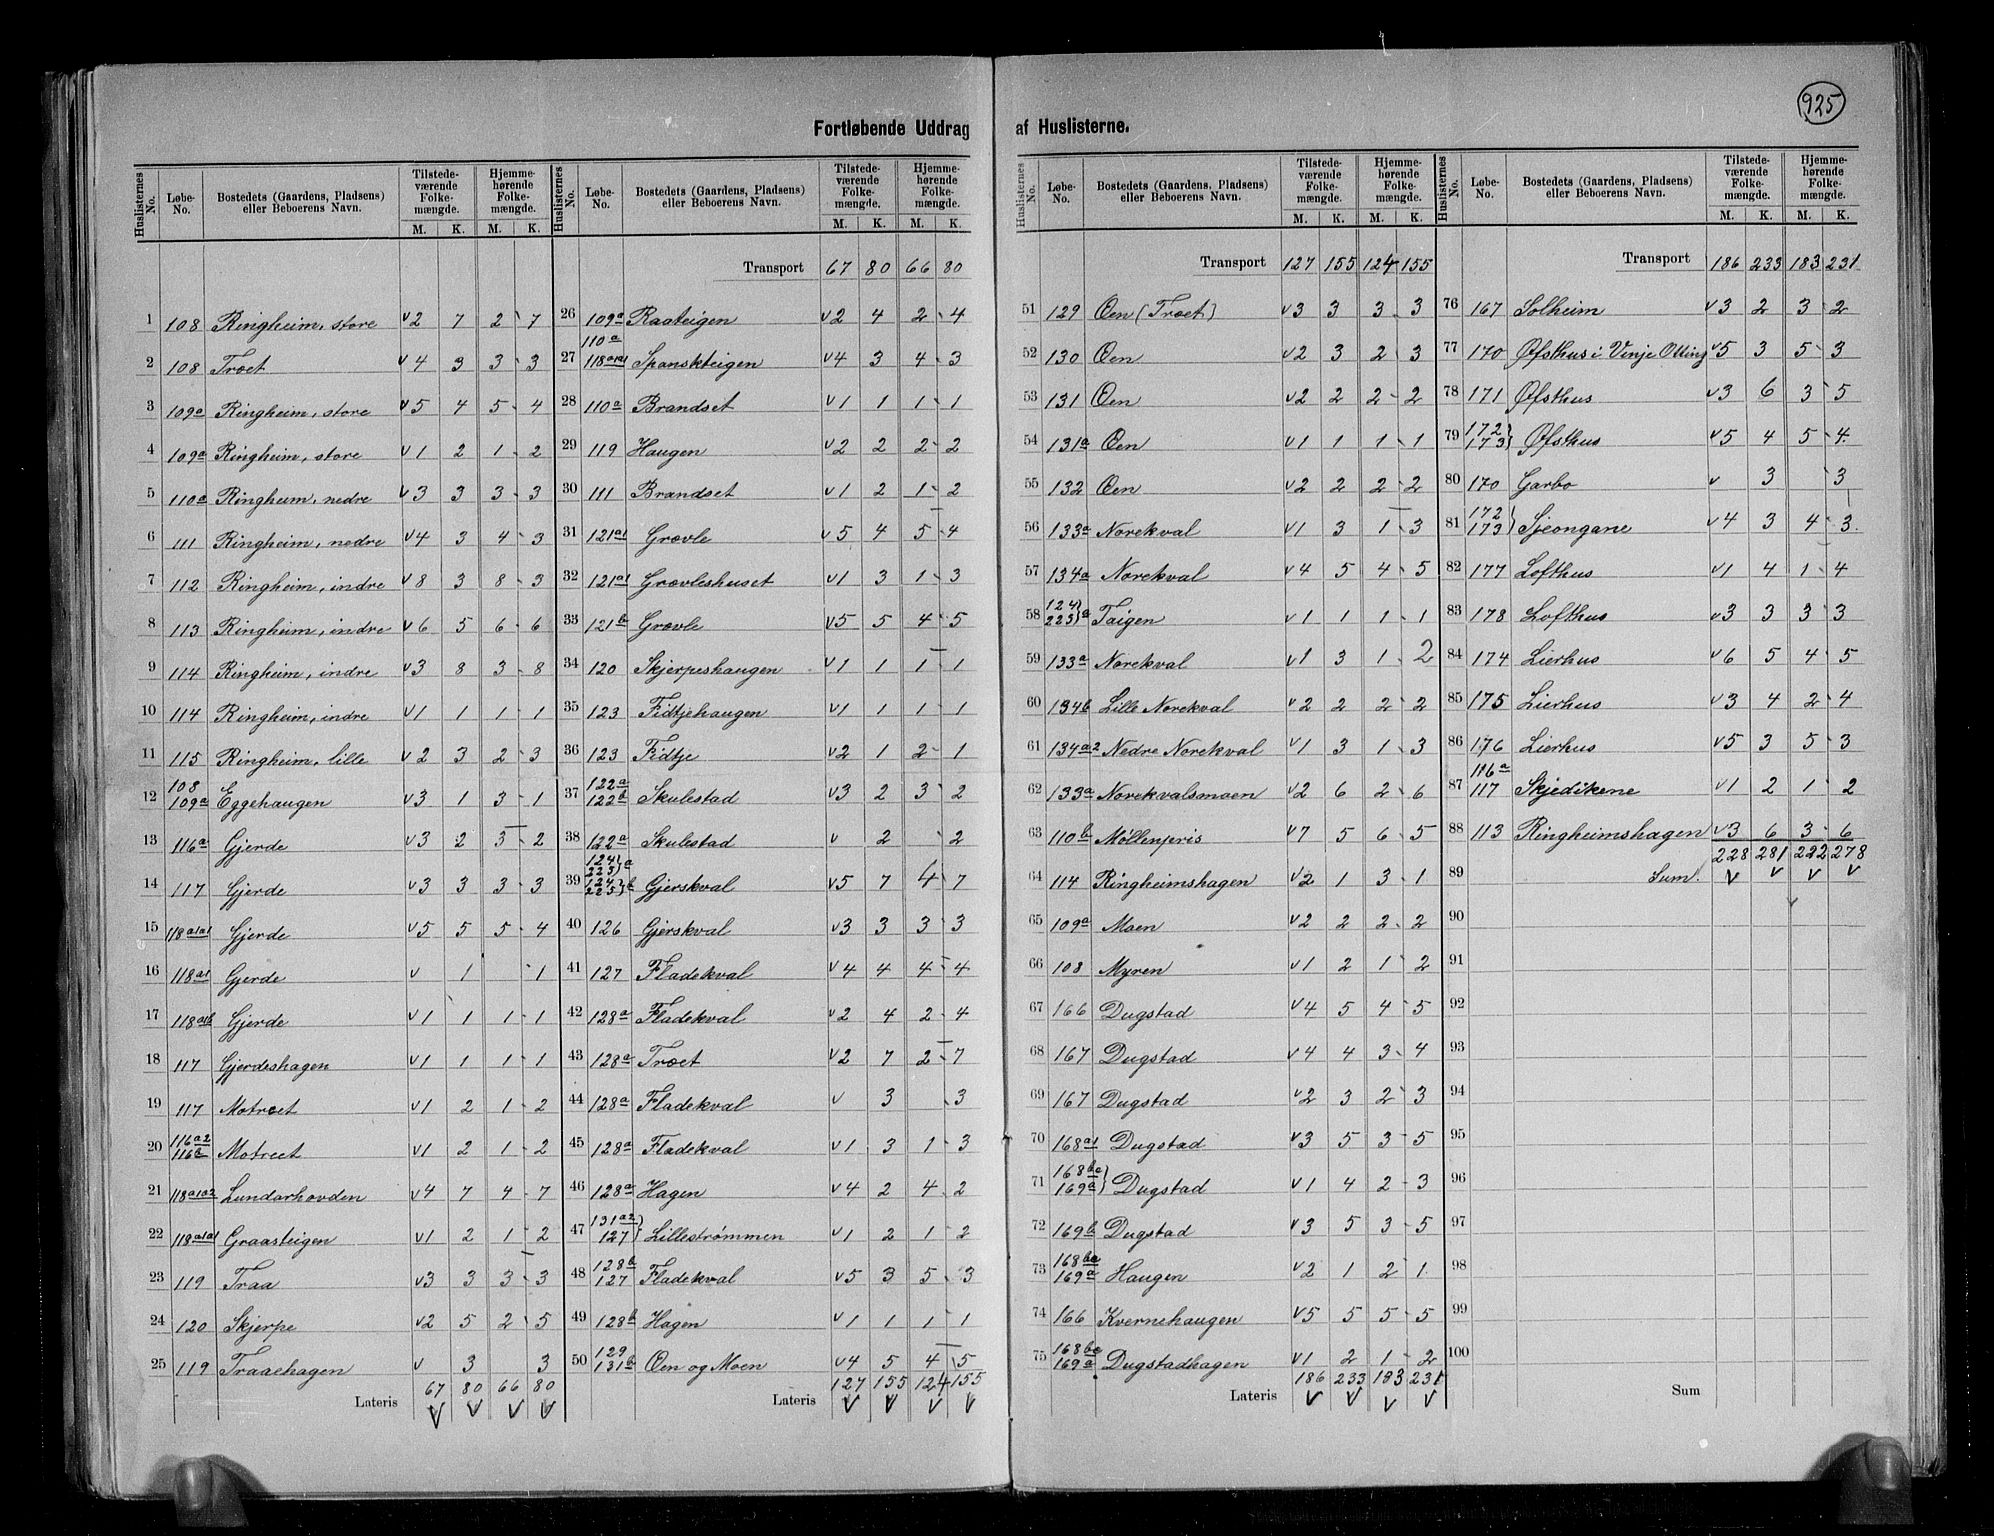 925
Fortløbende Uddrag af Huslisterne.
Huslisternes No. Løbe-No. Bostedets (Gaardens, Pladsens) eller Beboerens Navn. Tilstede-værende Folke-mængde. M. K. Hjemme-hørende Folke-mængde. M. K.
1 108 Ringheim, store v2 7 2 7
2 108 Trœt v4 3 3 3
3 109a Ringheim, store v5 4 5 4
4 109a Ringheim, store v1 2 1 2
5 110a Ringheim, nedre v3 3 3 3
6 111 Ringheim, nedre v4 3 4 3
7 112 Ringheim, indre v8 3 8 3
8 113 Ringheim, indre v6 5 6 6
9 114 Ringheim, indre v3 8 3 8
10 114 Ringheim, indre v1 1 1 1
11 115 Ringheim, lille v2 3 2 3
12 108 109a Eggehaugen v3 1 3 1
13 116a Gjerde v3 2 3 2
14 117 Gjerde v3 3 3 3
15 118a1a1 Gjerde v5 5 5 4
16 118a1 Gjerde v 1 1
17 118a1b Gjerde v1 1 1 1
18 117 Gjerdeshagen v1 1 1 1
19 117 Motrœt v1 2 1 2
20 116a2 116a Motrœt v1 2 1 2
21 118a1a2 Lundarhovden v4 7 4 7
22 118a1a1 Graasteigen v1 2 1 2
23 119 Traa v3 3 3 3
24 120 Skjerpe v2 5 2 5
25 119 Traaehagen v 3 3
Lateris 67 80 66 80
v v v v
Huslisternes No. Løbe-No. Bostedets (Gaardens, Pladsens) eller Beboerens Navn. Tilstede-værende Folke-mængde. M. K. Hjemme-hørende Folke-mængde. M. K.
Transport 67 80 66 80
26 109a Raateigen v2 4 2 4
27 110a 118a1a1 Spanskteigen v4 3 4 3
28 110a Brandset v1 1 1 1
29 119 Haugen v2 2 2 2
30 111 Brandset v1 2 1 2
31 121a1 Grœvle v5 4 5 4
32 121a1 Grœvleshuset v1 3 1 3
33 121b Grœvle v5 5 4 5
34 120 Skjerpeshaugen v1 1 1 1
35 123 Fidtjehaugen v1 1 1 1
36 123 Fidtje v2 1 2 1
37 122a 122b Skulestad v3 2 3 2
38 122a Skulestad v 2 2
39 124 223}a 124 225}b Gjerskval v5 7 4 7
40 126 Gjerskval v3 3 3 3
41 127 Fladekval v4 4 4 4
42 128a Fladekval v2 4 2 4
43 128a Trœt v2 7 2 7
44 128a Fladekval v 3 3
45 128a Fladekval v1 3 1 3
46 128a Hagen v4 2 4 2
47 131a2 127} Lillestrømmen v1 2 1 2
48 128b 127 Fladekval v5 3 5 3
49 128b Hagen v1 1 1 1
50 129 131b Øen og Moen v4 5 4 5
Lateris 127 155 124 155
v v v v
Huslisternes No. Løbe-No. Bostedets (Gaardens, Pladsens) eller Beboerens Navn. Tilstede-værende Folke-mængde. M. K. Hjemme-hørende Folke-mængde. M. K.
Transport 127 155 124 155
51 129 Øen (Trœt) v3 3 3 3
52 130 Øen v2 3 2 3
53 131 Øen v2 2 2 2
54 131a Øen v1 1 1 1
55 132 Øen v2 2 2 2
56 133a Norekval v1 3 1 3
57 134a Norekval v4 5 4 5
58 124 223}a Taigen v1 1 1 1
59 133a Norekval v1 3 1 2
60 134b Lille Norekval v2 2 2 2
61 134a2 Nedre Norekval v1 3 1 3
62 133a Norekvalsmoen v2 6 2 6
63 110b Møllenjeris v7 5 6 5
64 114 Ringheimshagen v2 1 3 1
65 109a Moen v2 2 2 2
66 108 Myren v1 2 1 2
67 166 Dugstad v4 5 4 5
68 167 Dugstad v4 4 3 4
69 167 Dugstad v2 3 2 3
70 168a1 Dugstad v3 5 3 5
71 168ba 169a} Dugstad v1 4 2 3
72 169b Dugstad v3 5 3 5
73 168ba 169a Haugen v2 1 2 1
74 166 Kvernehaugen v5 5 5 5
75 168ba 169a Dugstadhagen v1 2 1 2
Lateris 186 233 183 231
v v v v
Huslisternes No. Løbe-No. Bostedets (Gaardens, Pladsens) eller Beboerens Navn. Tilstede-værende Folke-mængde. M. K. Hjemme-hørende Folke-mængde. M. K.
Transport 186 233 183 231
76 167 Solheim v3 2 3 2
77 170 Øfsthus i Vinje Otting v5 3 5 3
78 171 Øfsthus v3 6 3 5
79 172 173} Øfsthus v5 4 5 4
80 170 Garbo v 3 3
81 172 173} Sjeongane v4 3 4 3
82 177 Lofthus v1 4 1 4
83 178 Lofthus v3 3 3 3
84 174 Lierhus v6 5 4 5
85 175 Lierhus v3 4 2 4
86 176 Lierhus v5 3 5 3
87 116a 117 Skjedikene v1 2 1 2
88 113 Ringheimshagen v3 6 3 6
89 Sum. 228 281 222 278
v v v v
90
91
92
93
94
95
96
97
98
99
100
Sum